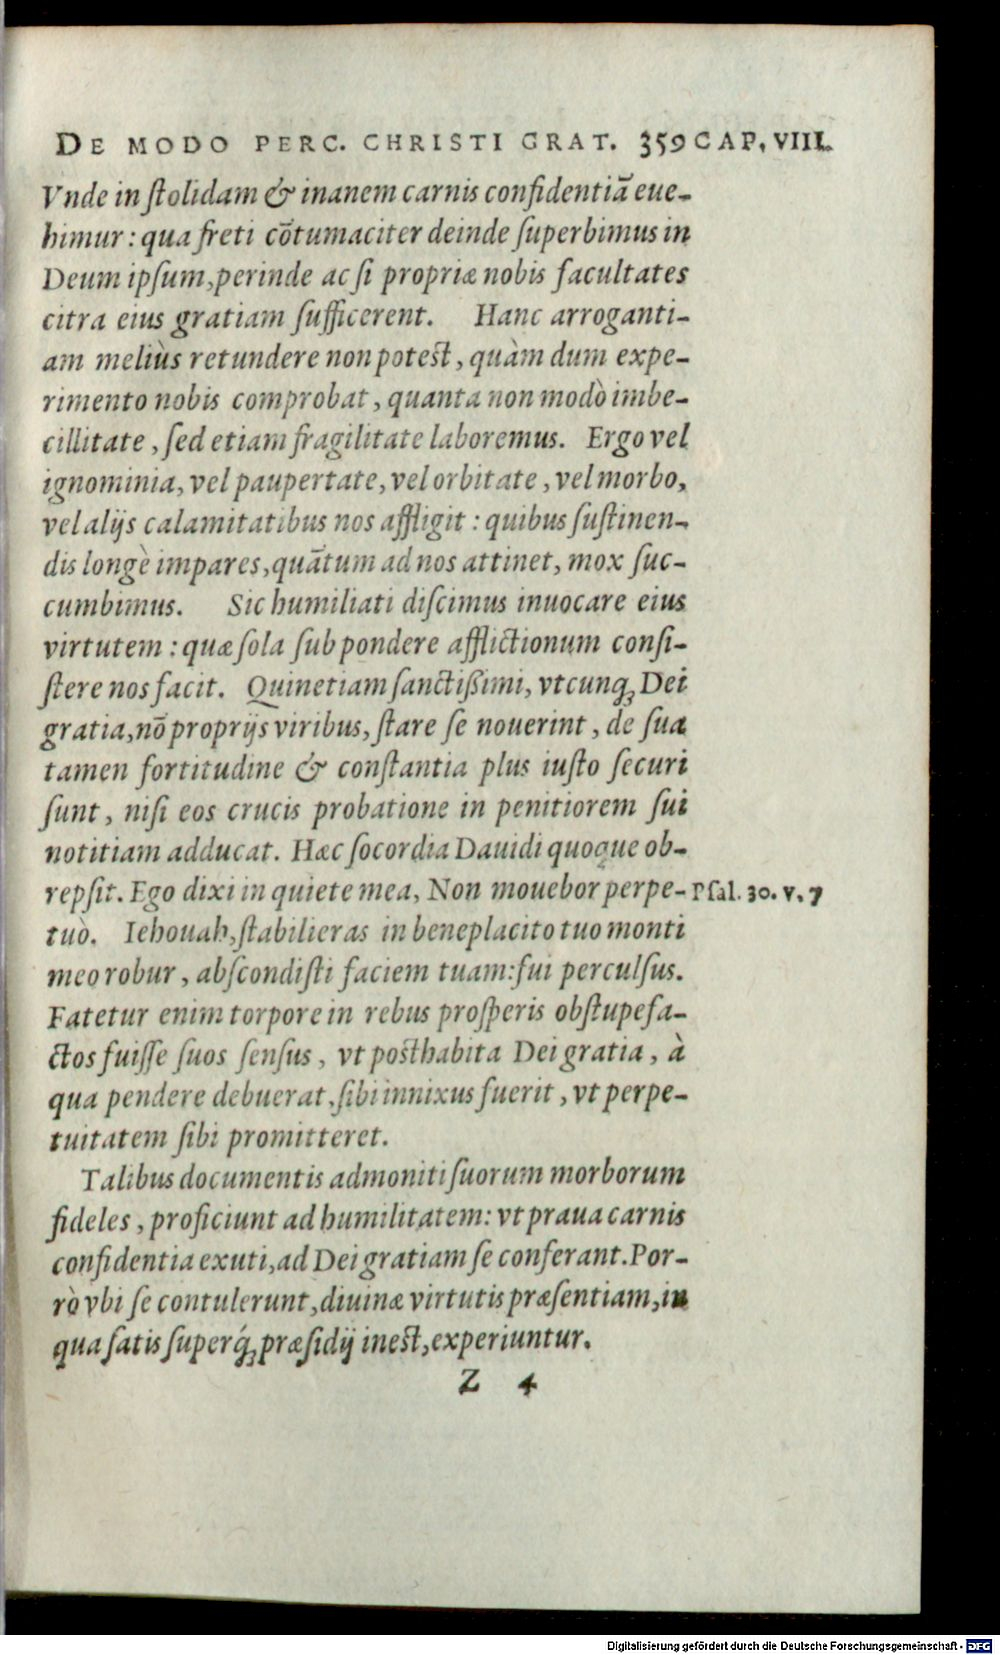 DE MODO PERC. CHRISTI GRAT. 359 CAP. VIII.
Vnde in ſtolidam & inanem carnis confidentiā eue-
himur: qua freti cōtumaciter deinde ſuperbimus in
Deum ipſum, perinde ac ſi propriæ nobis facultates
citra eius gratiam ſufficerent. Hanc arroganti-
am meliùs retundere non poteſt, quàm dum expe-
rimento nobis comprobat, quanta non modò imbe-
cillitate, ſed etiam fragilitate laboremus. Ergo vel
ignominia, vel paupertate, vel orbitate, vel morbo,
vel alijs calamitatibus nos affligit: quibus ſuſtinen-
dis longè impares, quātum ad nos attinet, mox ſuc-
cumbimus. Sic humiliati diſcimus inuocare eius
virtutem: quæ ſola ſub pondere afflictionum conſi-
ſtere nos facit. Quinetiam ſanctißimi, vtcunq; Dei
gratia, nō proprijs viribus, ſtare ſe nouerint, de ſua
tamen fortitudine & conſtantia plus iuſto ſecuri
ſunt, niſi eos crucis probatione in penitiorem ſui
notitiam adducat. Hæc ſocordia Dauidi quoque ob-
repſit. Ego dixi in quiete mea, Non mouebor perpe-
Pſal. 30. v. 7
tuò. Iehouah, ſtabilieras in beneplacito tuo monti
meo robur, abſcondiſti faciem tuam: fui perculſus.
Fatetur enim torpore in rebus proſperis obſtupefa-
ctos fuiſſe ſuos ſenſus, vt poſthabita Dei gratia, à
qua pendere debuerat, ſibi innixus fuerit, vt perpe-
tuitatem ſibi promitteret.
Talibus documentis admoniti ſuorum morborum
fideles, proficiunt ad humilitatem: vt praua carnis
confidentia exuti, ad Dei gratiam ſe conferant. Por-
rò vbi ſe contulerunt, diuinæ virtutis præſentiam, in
qua ſatis ſuperq́; præſidij ineſt, experiuntur.
Z 4
Digitalisierung gefördert durch die Deutsche Forschungsgemeinschaft - DFG